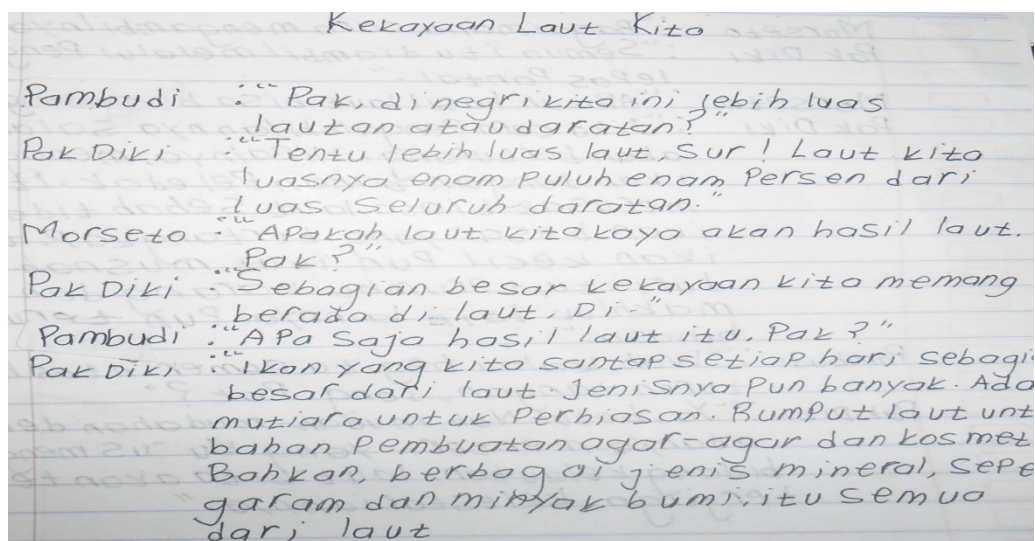 Kekayaan Laut Kita
Pambudi : "Pak, di negri kita ini lebih luas
lautan atau daratan?"
Pak Diki : "Tentu lebih luas laut, Sur! Laut kita
luasnya enam puluh enam Persen dari
luas seluruh daratan."
Morseto : "APakah laut kita kaya akan hasil laut.
Pak?"
Pak Diki : "Sebagian besar kekayaan kita memang
berada di laut, Di."
Pambudi : "APa saja hasil laut itu, Pak?"
Pak Diki : "Ikan yang kita santap setiap hari sebagi
besar dari laut jenisnya Pun banyak. Ada
mutiara untuk Perhiasan. Rumput laut unt
bahan Pembuatan agar-agar dan kosmet
Bahkan, berbagai jenis mineral, sepe
garam dan minyak bumi, itu semua
dari laut